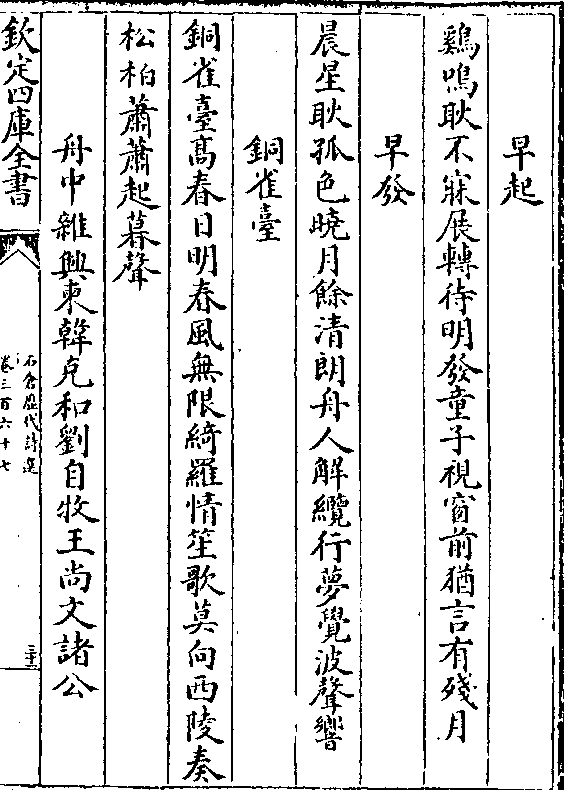 早起
鷄鳴耿不寐展轉待明發童子視窗前猶言有殘月
早發
晨星耿孤色曉月餘清朗舟人解纜行夢覺波聲響
銅雀臺
銅雀臺高春日明春風無限綺羅情笙歌莫向西陵奏
松柏蕭蕭起暮聲
舟中雜興柬韓克和劉自牧王尚文諸公
欽定四庫全書
石倉歷代詩選
卷三百六十七